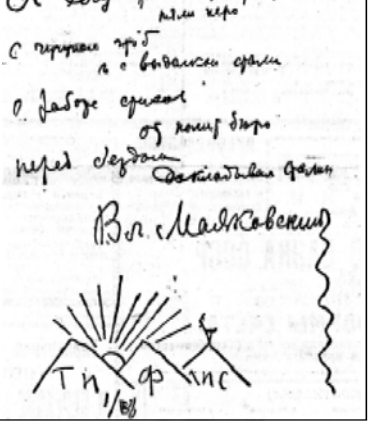 няли перо
с чугуном чтоб
и с выделкой стали
о работе стихов
от политбюро
перед съездом
докладывал Сталин
Вл. Маяковский
Ти Ф лис